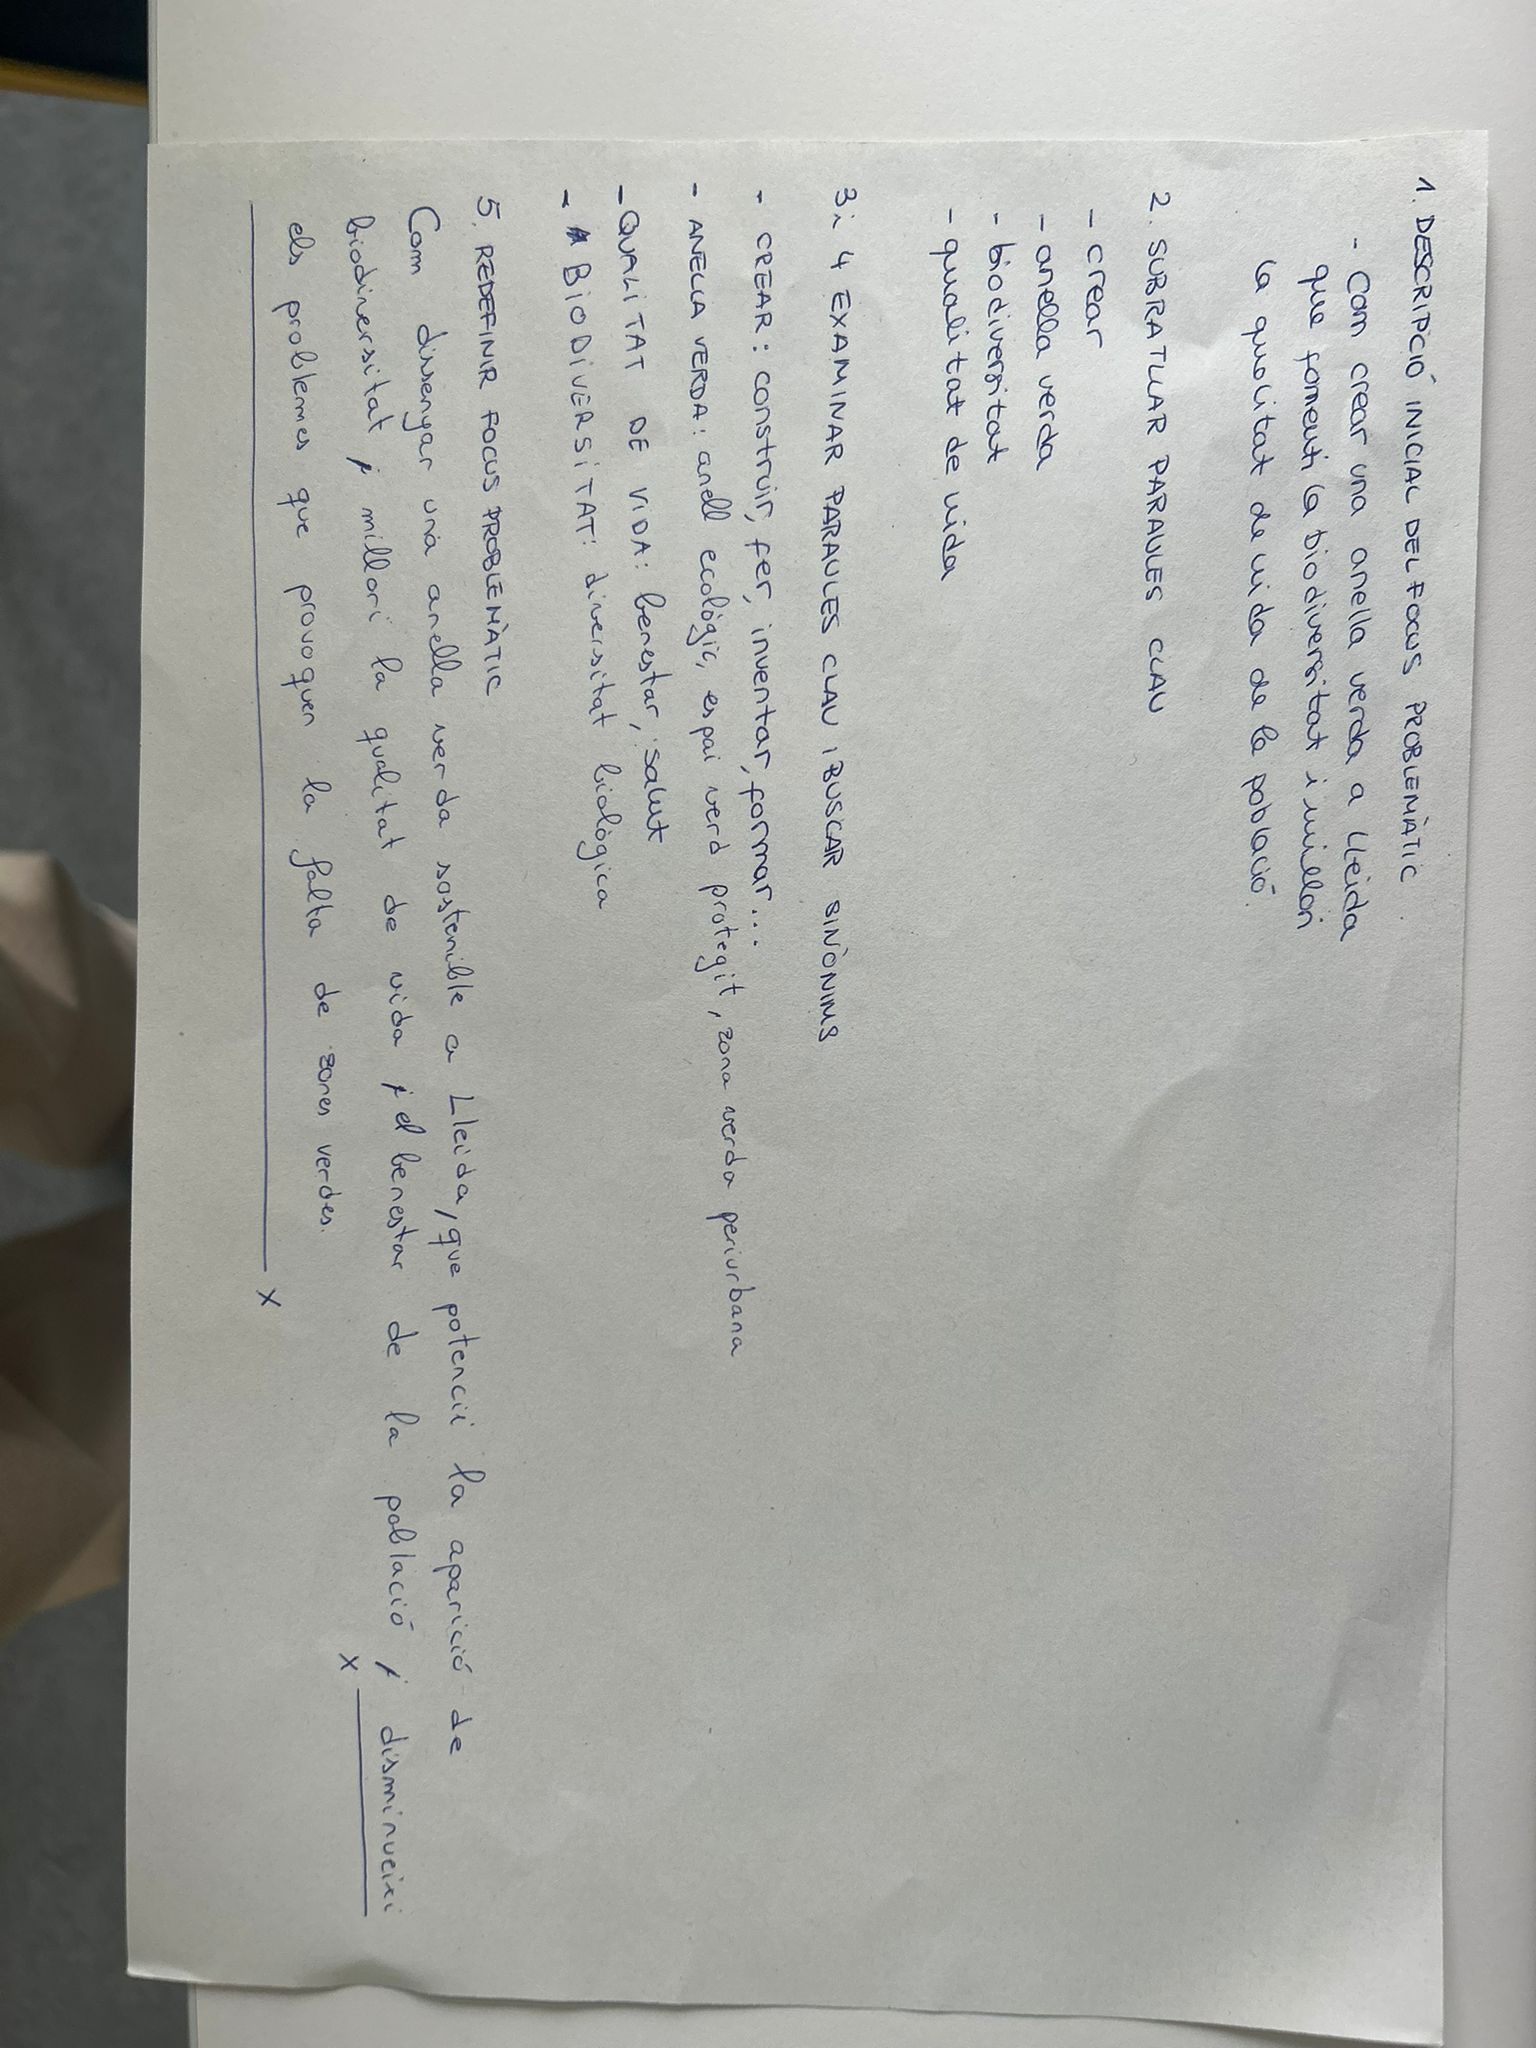 1. DESCRIPCIÓ INICIAL DEL FOCUS PROBLEMÀTIC.
- Com crear una anella verda a Lleida
que fomenti la biodiversitat i millori
la qualitat de vida de la població.
2. SUBRATLLAR PARAULES CLAU
- crear
- anella verda
- biodiversitat
- qualitat de vida
3 i 4 EXAMINAR PARAULES CLAU i BUSCAR SINÒNIMS
- CREAR: construir, fer, inventar, formar...
- ANELLA VERDA: anell ecològic, espai verd protegit, zona verda periurbana
- QUALITAT DE VIDA: benestar, salut
- BIODIVERSITAT: diversitat biològica
5. REDEFINIR FOCUS PROBLEMÀTIC
Com dissenyar una anella verda sostenible a Lleida, que potencii la aparició de
biodiversitat i millori la qualitat de vida i el benestar de la població i disminueixi
x
els problemes que provoquen la falta de zones verdes.
x